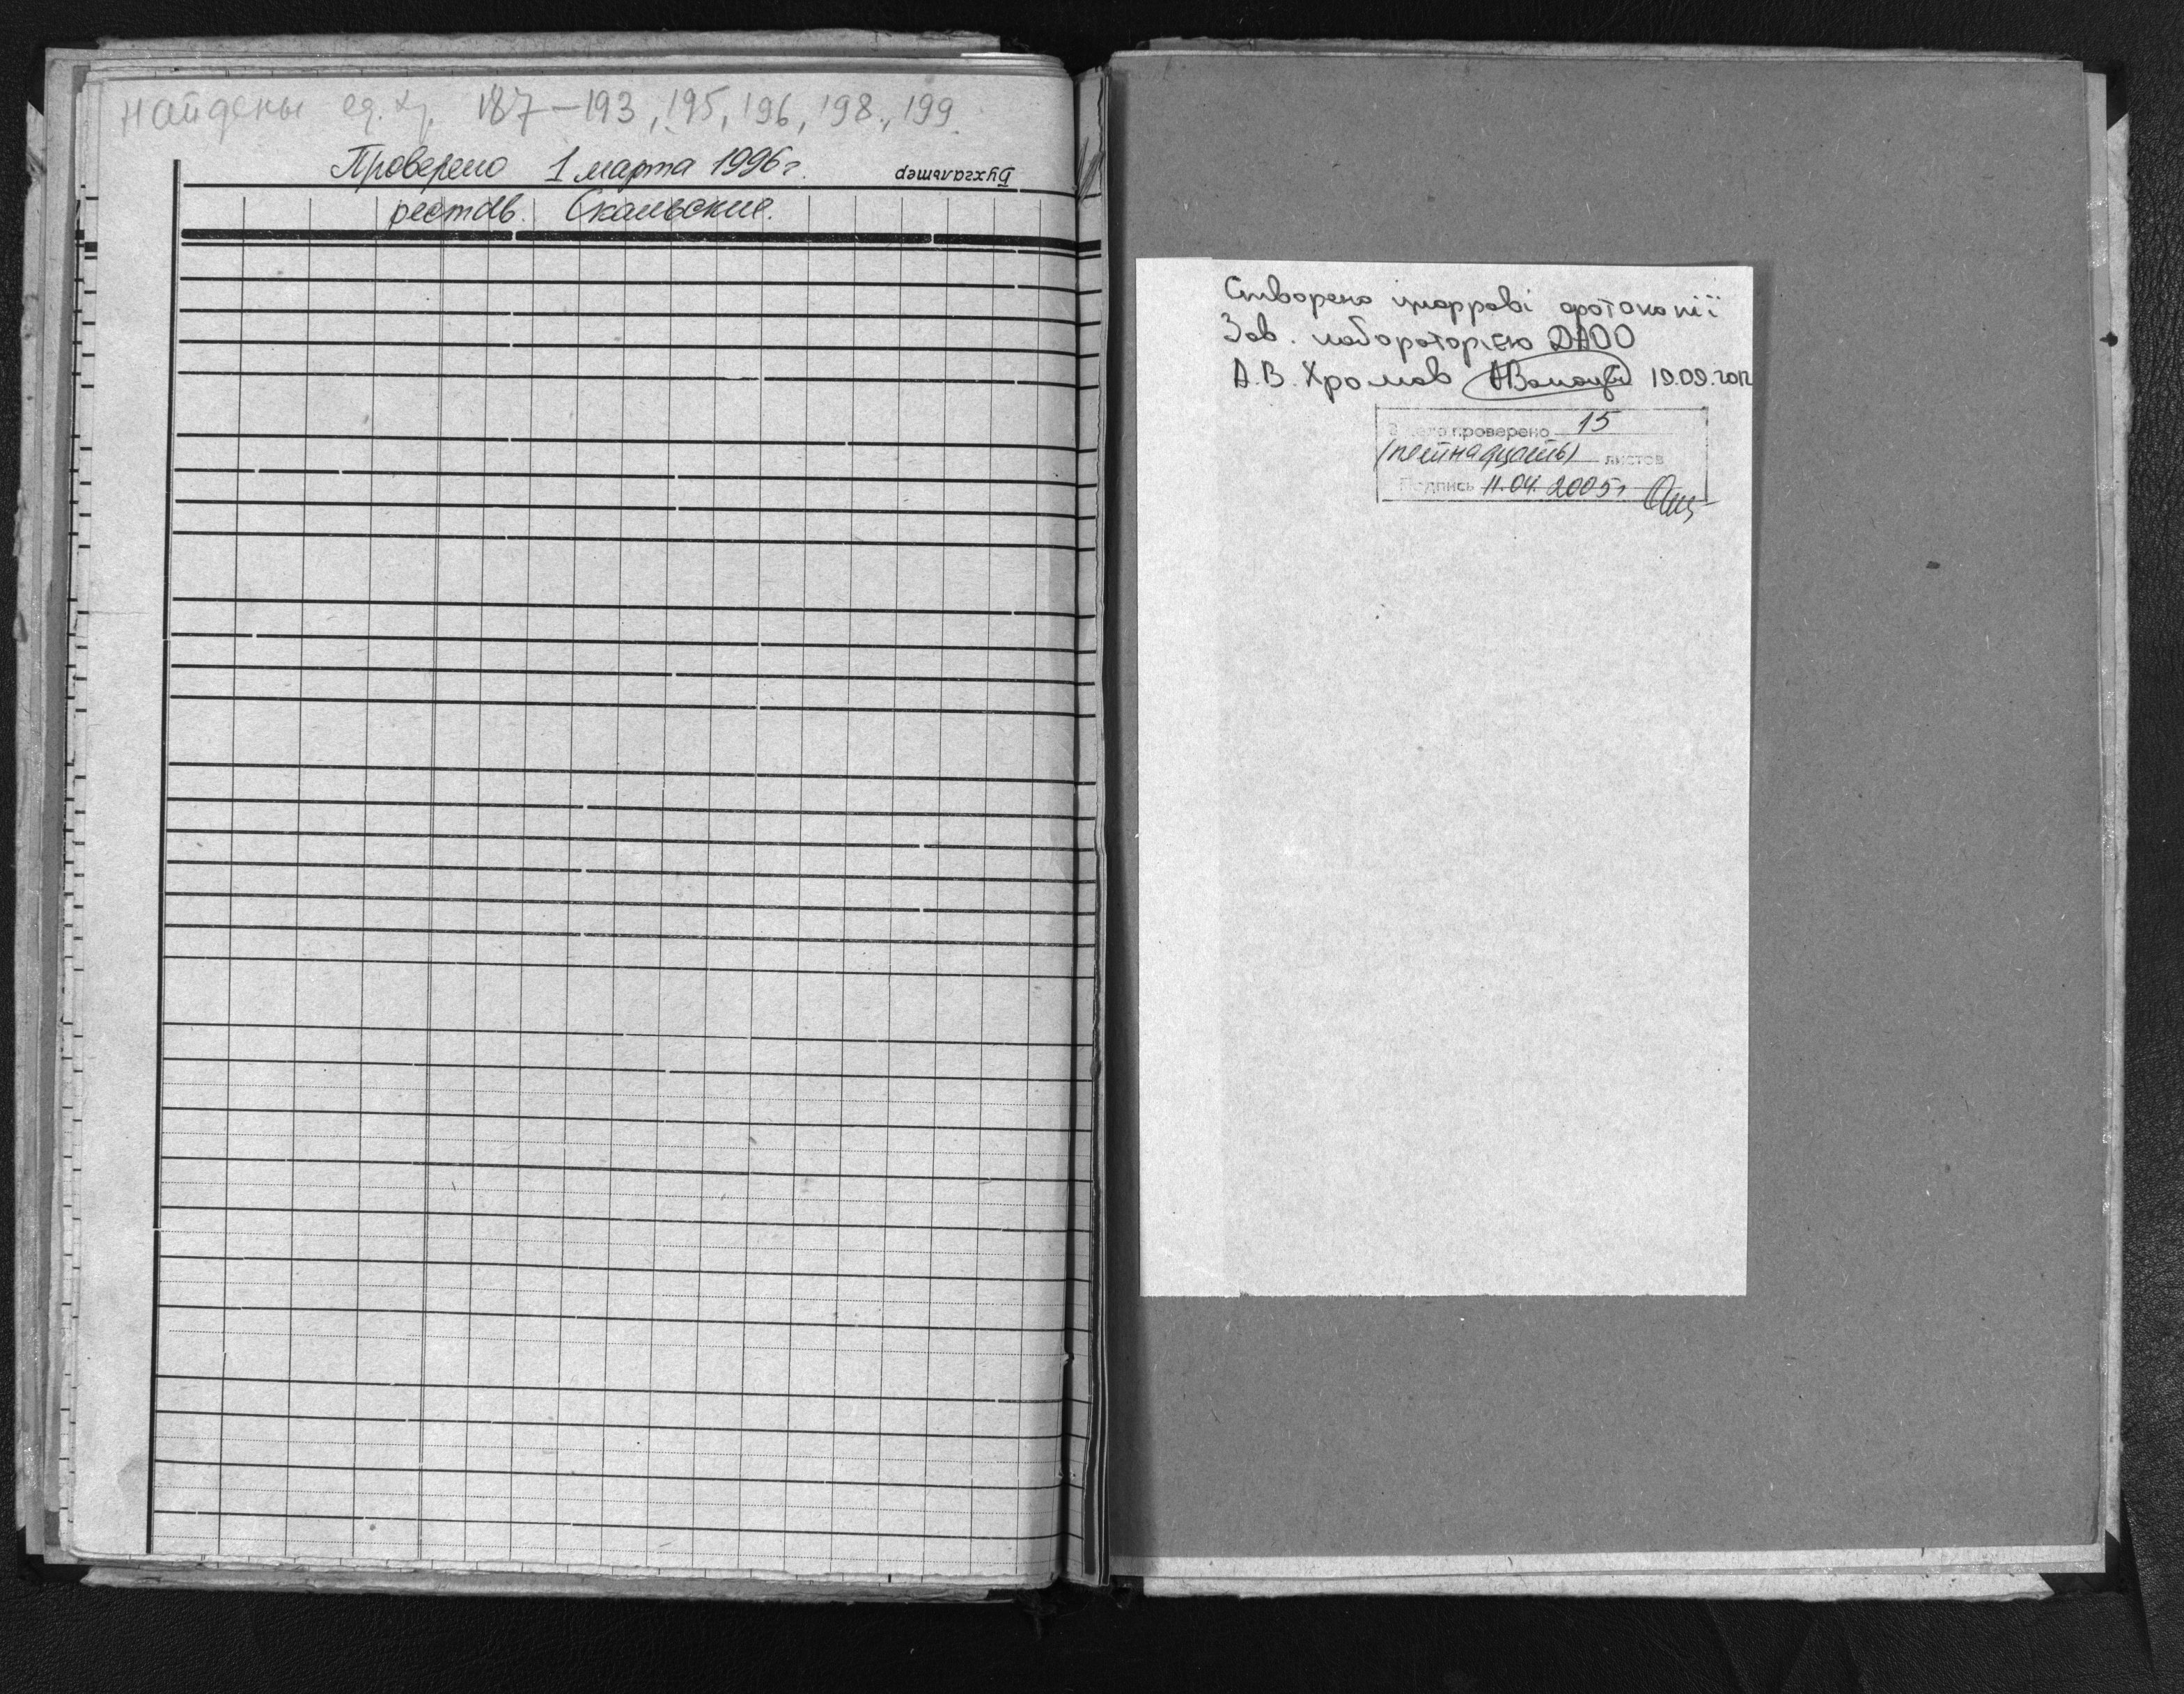 найдены ед. хр. 187–193, 195, 196, 198, 199.
Проверено 1 марта 1996 г.
Бухгалтер
рестав. Скальские.
Створено цифрові фотокопії
Зав. лабораторією ДАОО
А.В. Хромов 19.09.2012
В деле проверено 15
(пятнадцать) листов
Подпись 11.04.2005 г.